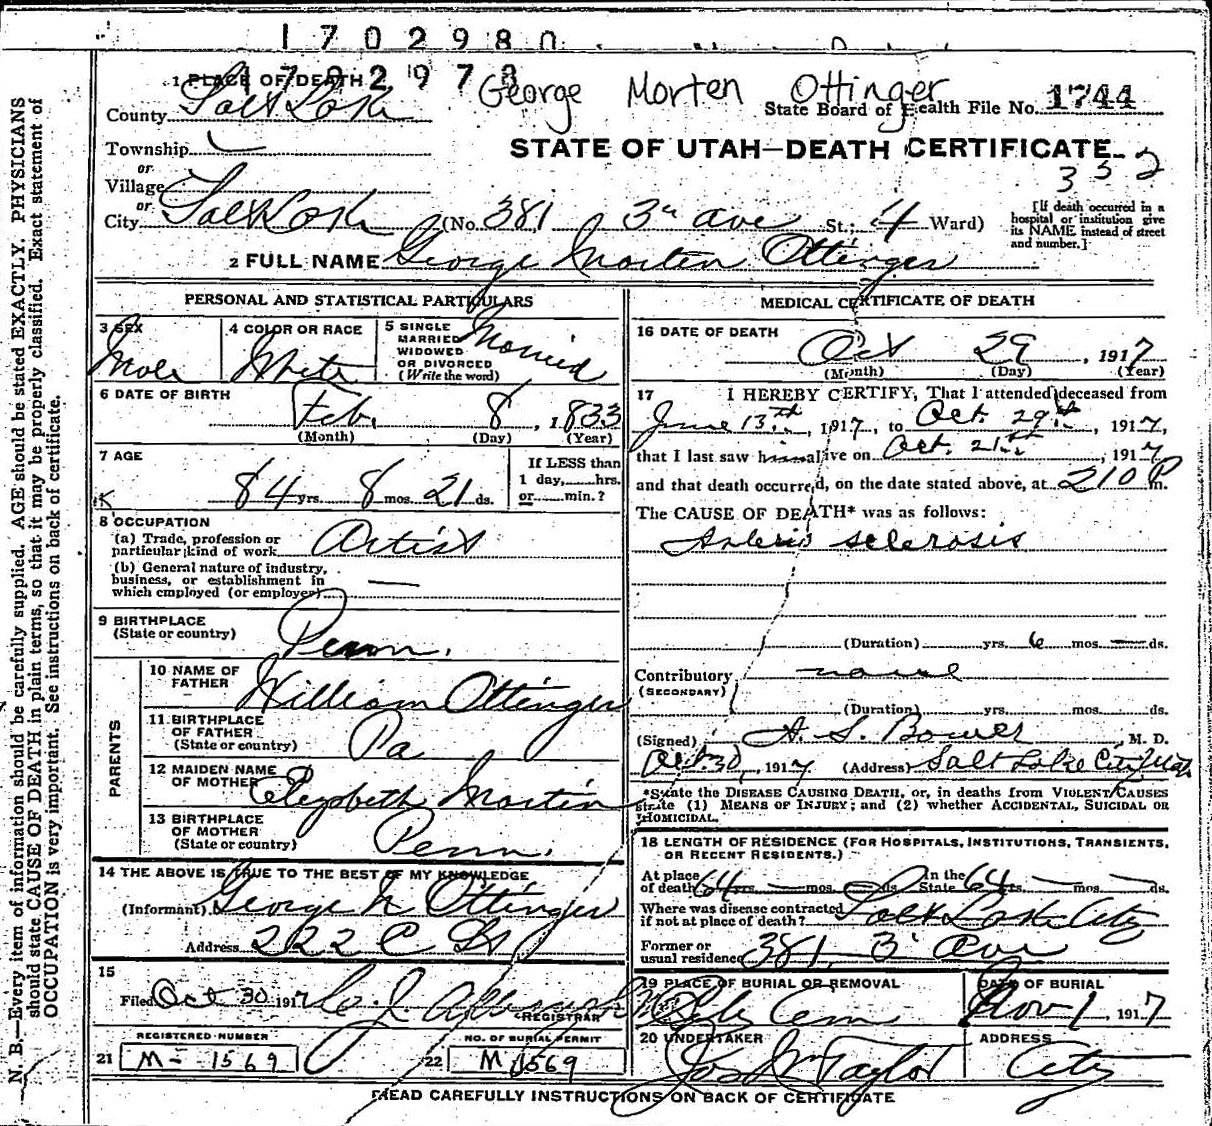 1702980
1702978
George Morten Ottinger
1 PLACE OF DEATH
County Salt Lake
State Board of Health File No. 1744
STATE OF UTAH—DEATH CERTIFICATE
Township
or
Village
or
City Salt Lake (No. 381 3rd ave St.; 4 Ward)
332
[If death occurred in a hospital or institution give its NAME instead of street and number.]
2 FULL NAME George Morten Ottinger
PERSONAL AND STATISTICAL PARTICULARS
3 SEX
Male
4 COLOR OR RACE
White
5 SINGLE
MARRIED
WIDOWED
OR DIVORCED
(Write the word)
Married
6 DATE OF BIRTH
Feb. 8, 1833
(Month) (Day) (Year)
7 AGE
84 yrs. 8 mos. 21 ds.
If LESS than
1 day, hrs.
or min.?
8 OCCUPATION
(a) Trade, profession or
particular kind of work Artist
(b) General nature of industry,
business, or establishment in
which employed (or employer) —
9 BIRTHPLACE
(State or country) Penn.
PARENTS
10 NAME OF
FATHER William Ottinger
11 BIRTHPLACE
OF FATHER
(State or country) Pa
12 MAIDEN NAME
OF MOTHER Elizabeth Martin
13 BIRTHPLACE
OF MOTHER
(State or country) Penn.
14 THE ABOVE IS TRUE TO THE BEST OF MY KNOWLEDGE
(Informant) George Ottinger
Address 222 C St
15
Filed Oct 30 1917
REGISTRAR
REGISTERED NUMBER
21 M-1569
NO. OF BURIAL PERMIT
22 M1569
MEDICAL CERTIFICATE OF DEATH
16 DATE OF DEATH
Oct 29, 1917
(Month) (Day) (Year)
17 I HEREBY CERTIFY, That I attended deceased from
June 13th, 1917, to Oct. 29th, 1917,
that I last saw him alive on Oct. 21st, 1917
and that death occurred, on the date stated above, at 210 P m.
The CAUSE OF DEATH* was as follows:
Arterio sclerosis
(Duration) yrs. 6 mos. — ds.
Contributory none
(SECONDARY)
(Duration) yrs. mos. ds.
(Signed) A. S. Bower, M. D.
Oct. 30, 1917 (Address) Salt Lake City Utah
*State the DISEASE CAUSING DEATH, or, in deaths from VIOLENT CAUSES
state (1) MEANS OF INJURY; and (2) whether ACCIDENTAL, SUICIDAL OR
HOMICIDAL.
18 LENGTH OF RESIDENCE (FOR HOSPITALS, INSTITUTIONS, TRANSIENTS,
OR RECENT RESIDENTS.)
At place
of death 64 yrs. — mos. — ds. In the State 64 yrs. — mos. — ds.
Where was disease contracted
if not at place of death? Salt Lake City
Former or
usual residence 381 3 Ave
19 PLACE OF BURIAL OR REMOVAL
City Cem
DATE OF BURIAL
Nov 1, 1917
20 UNDERTAKER
Jos Wm Taylor
ADDRESS
City
READ CAREFULLY INSTRUCTIONS ON BACK OF CERTIFICATE
N. B.—Every item of information should be carefully supplied. AGE should be stated EXACTLY. PHYSICIANS
should state CAUSE OF DEATH in plain terms, so that it may be properly classified. Exact statement of
OCCUPATION is very important. See instructions on back of certificate.